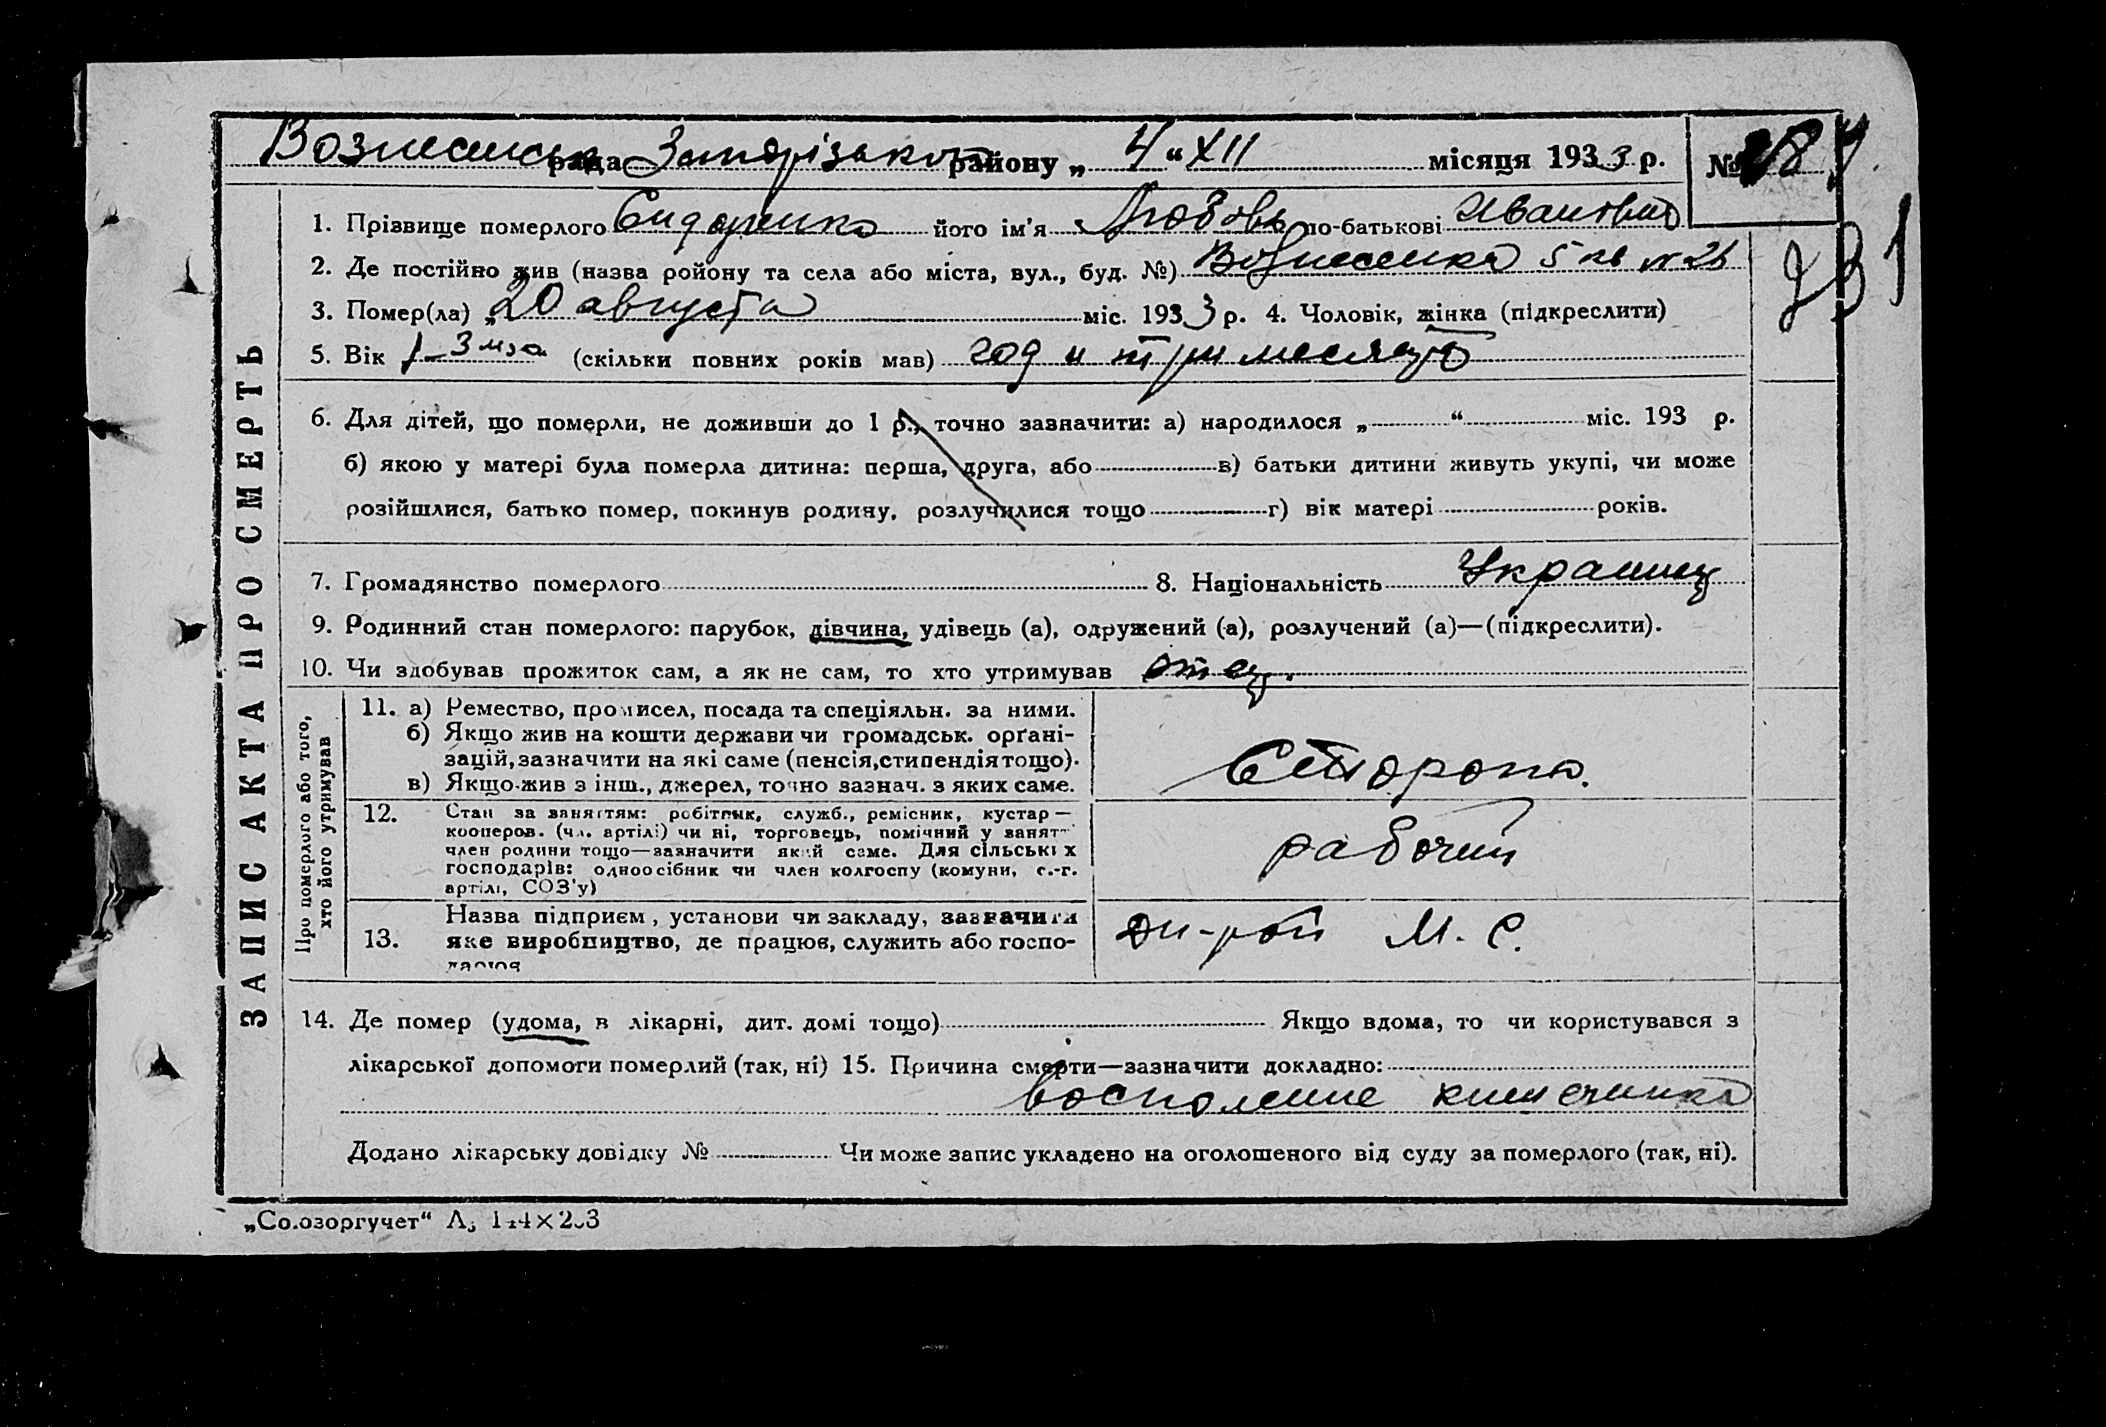 Вознесенська рада Запорізького району „ 4 “ XII місяця 1933 р. №
231
ЗАПИС АКТА ПРО СМЕРТЬ
1. Прізвище померлого Сидоренко його ім'я Любовь по-батькові Ивановна
2. Де постійно жив (назва ройону та села або міста, вул., буд. №) Вознесенка 5 кв № 26
3. Помер(ла) „20 августа міс. 1933 р. 4. Чоловік, жінка (підкреслити)
5. Вік 1 - 3 м-ца (скільки повних років мав) год и три месяца
6. Для дітей, що померли, не доживши до 1 р., точно зазначити: а) народилося „ “ міс. 193 р.
б) якою у матері була померла дитина: перша, друга, або в) батьки дитини живуть укупі, чи може
розійшлися, батько помер, покинув родину, розлучилися тощо г) вік матері років.
7. Громадянство померлого 8. Національність Украинец
9. Родинний стан померлого: парубок, дівчина, удівець (а), одружений (а), розлучений (а)—(підкреслити).
10. Чи здобував прожиток сам, а як не сам, то хто утримував отец.
Про померлого або того,
хто його утримував
11. а) Ремество, промисел, посада та спеціяльн. за ними.
б) Якщо жив на кошти держави чи громадськ. орґані-
зацій, зазначити на які саме (пенсія, стипендія тощо).
в) Якщо жив з інш., джерел, точно зазнач. з яких саме.
Сторож.
12. Стан за заняттям: робітник, служб., ремісник, кустар—
кооперов. (чл. артілі) чи ні, торговець, помічний у занят-
член родини тощо—зазначити який саме. Для сільських
господарів: одноосібник чи член колгоспу (комуни, с.-г.
артілі, СОЗ'у)
рабочий
13. Назва підприєм, установи чи закладу, зазначити
яке виробництво, де працює, служить або госпо-
дарює
М. С.
14. Де помер (удома, в лікарні, дит. домі тощо) Якщо вдома, то чи користувався з
лікарської допомоги померлий (так, ні) 15. Причина смерти—зазначити докладно:
восполение кишечника
Додано лікарську довідку № Чи може запис укладено на оголошеного від суду за померлого (так, ні).
„Союзоргучет“